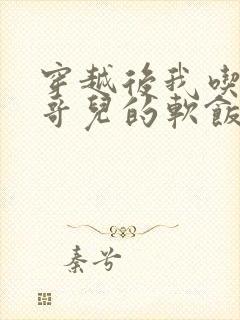 穿越後我喫
哥兒的軟飯
秦兮